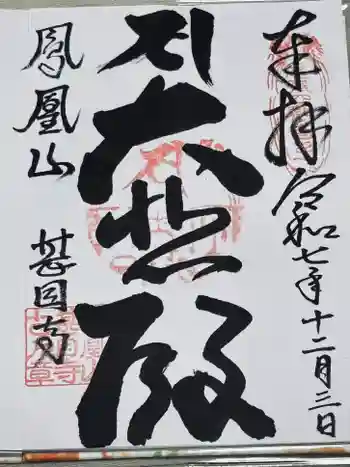 奉拝
令和七年十二月三日
大悲殿
鳳凰山
甚目寺